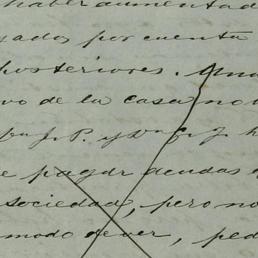 haber aumentad
por cuenta
posteriores. Una
vo de la casa no
P. y
e pagar deudas
sociedad, pero no
modo de ver, ped